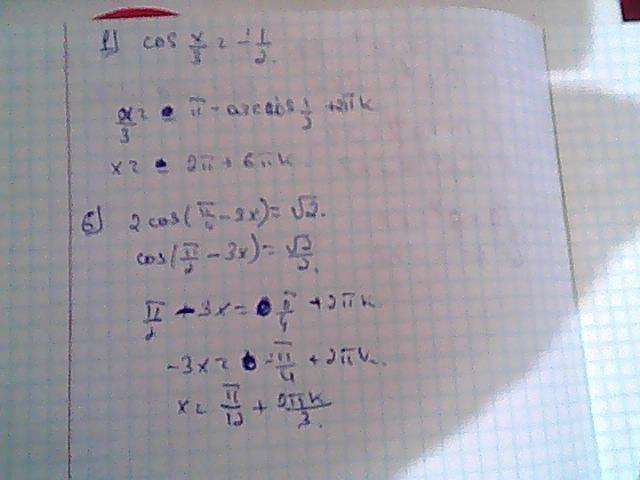 1) cos x/3 = -1/2.
x/3 = π - arccos 1/3 + 2πk
x = 2π + 6πk
б) 2cos(π/2 - 3x) = √2.
cos(π/2 - 3x) = √2/2.
π/2 - 3x = π/4 + 2πk
-3x = -π/4 + 2πk.
x = π/12 + 2πk/3.